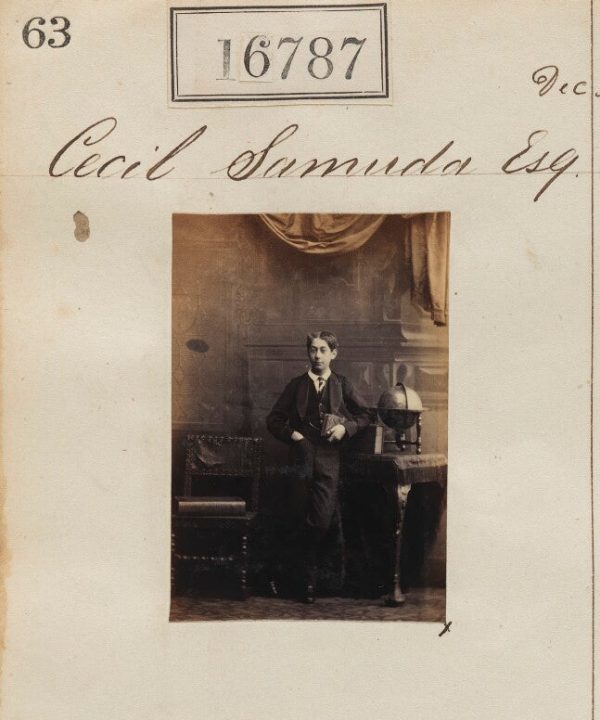 63
16787
Dec.
Cecil Samuda Esq.